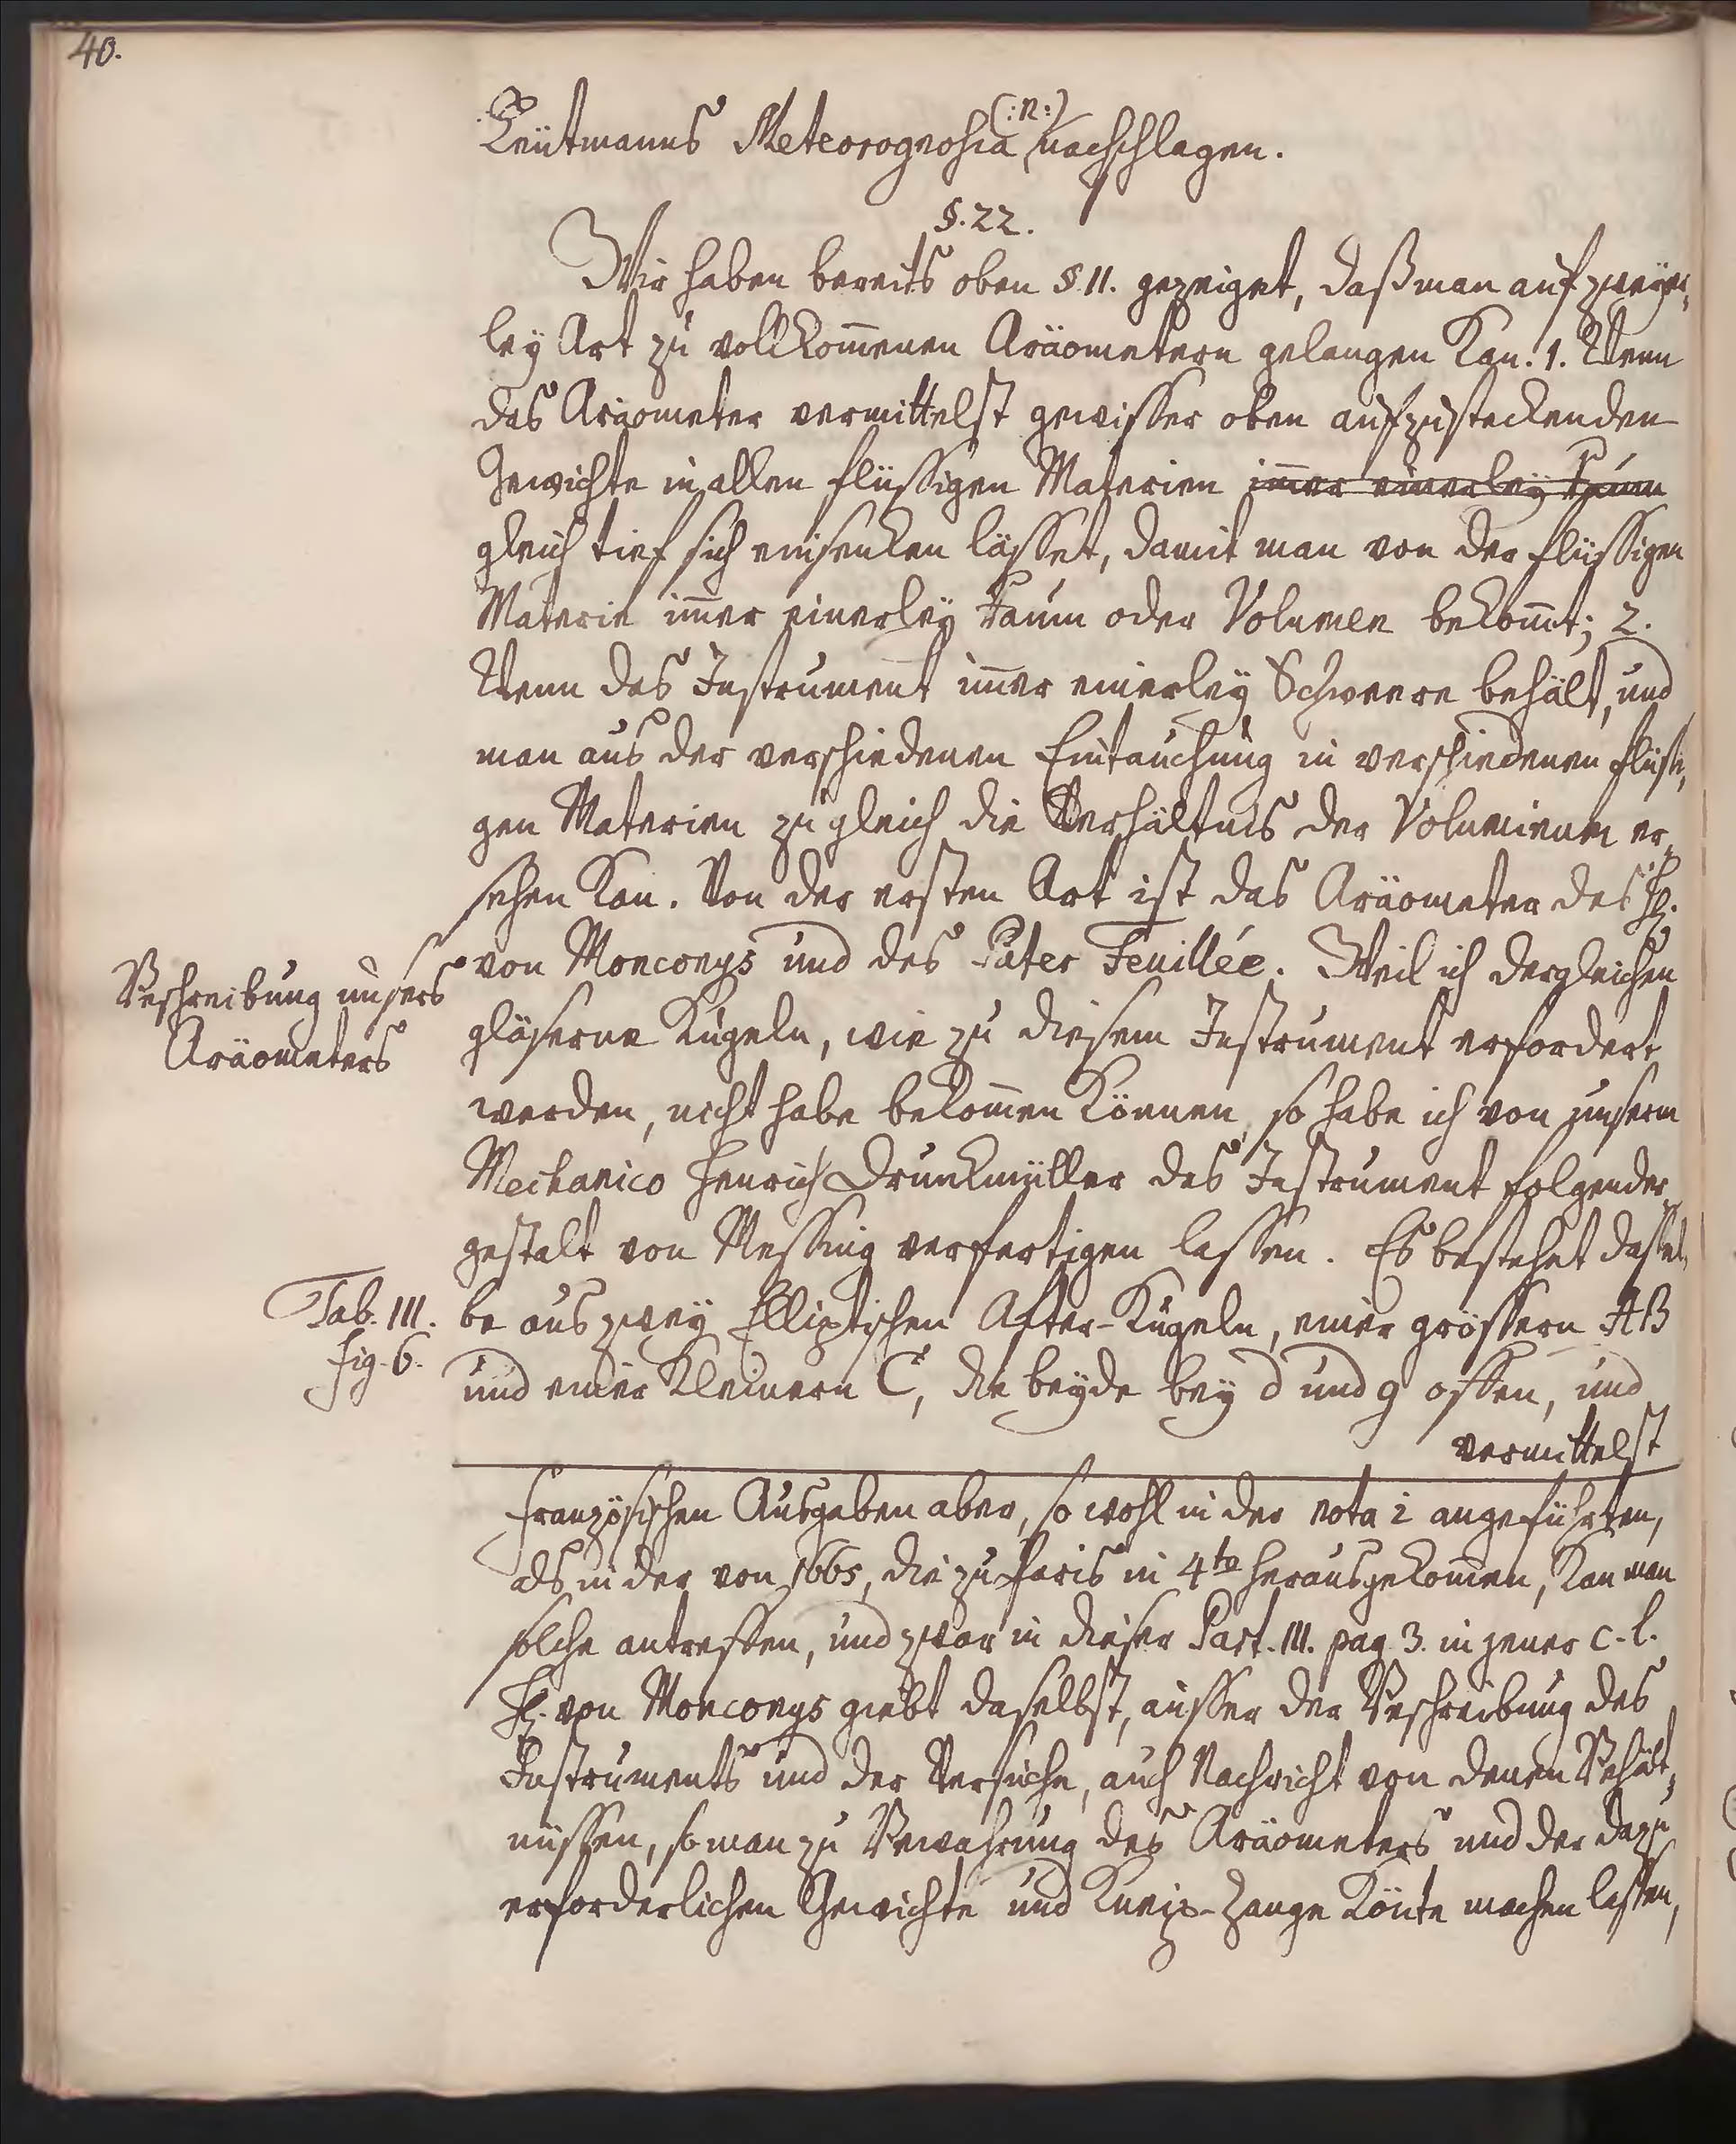 40.
Leütmanns Meteorognosia (:n:) nachschlagen.
§. 22.
Wir haben bereits oben §. 11. gezeiget, daß man auf zweyer,
ley Art zu vollkom̅enen Aräometern gelangen kan. 1. Wenn
das Aräometer vermittelst gewisser oben aufzusteckenden
Gewichte in allen flüssigen Materien im̅er einerley Raum
gleich tief sich einsenken lässet, damit man von der flüssigen
Materie im̅er einerley Raum oder Volumen bekom̅t; 2.
Wenn das Instrument im̅er einerley Schweere behält, und
man aus der verschiedenen Eintauchung in verschiedenen flüssi,
gen Materien zugleich die Verhältnis der Voluminum er,
sehen kan. Von der ersten Art ist das Aräometer des H.
von Monconys und des Pater Feuillée. Weil ich dergleichen
Beschreibung unsers
Aräometers
gläserne Kugeln, wie zu diesem Instrument erfordert
werden, nicht habe bekom̅en können, so habe ich von unserm
Mechanico Henrich Drunckmüller das Instrument folgender,
gestalt von Messing verfertigen lassen. Es bestehet dassel,
Tab. III.
fig. 6.
be aus zwey Elliptischen After-Kugeln, einer grössern AB
und einer kleinern C, die beyde bey d und g offen, und
vermittelst
französischen Ausgaben aber, so wohl in der nota i angeführten,
als in der von 1665, die zu Paris in 4to herausgekom̅en, kan man
solche antreffen, und zwar in dieser Part. III. pag. 3. in jener c. l.
H. von Monconys giebt daselbst, ausser der Beschreibung des
Instruments und der Versuche, auch Nachricht von denen Behält,
nüssen, so man zu Bewahrung des Aräometers und der dazu
erforderlichen Gewichte und Kneip-Zange könte machen lassen,